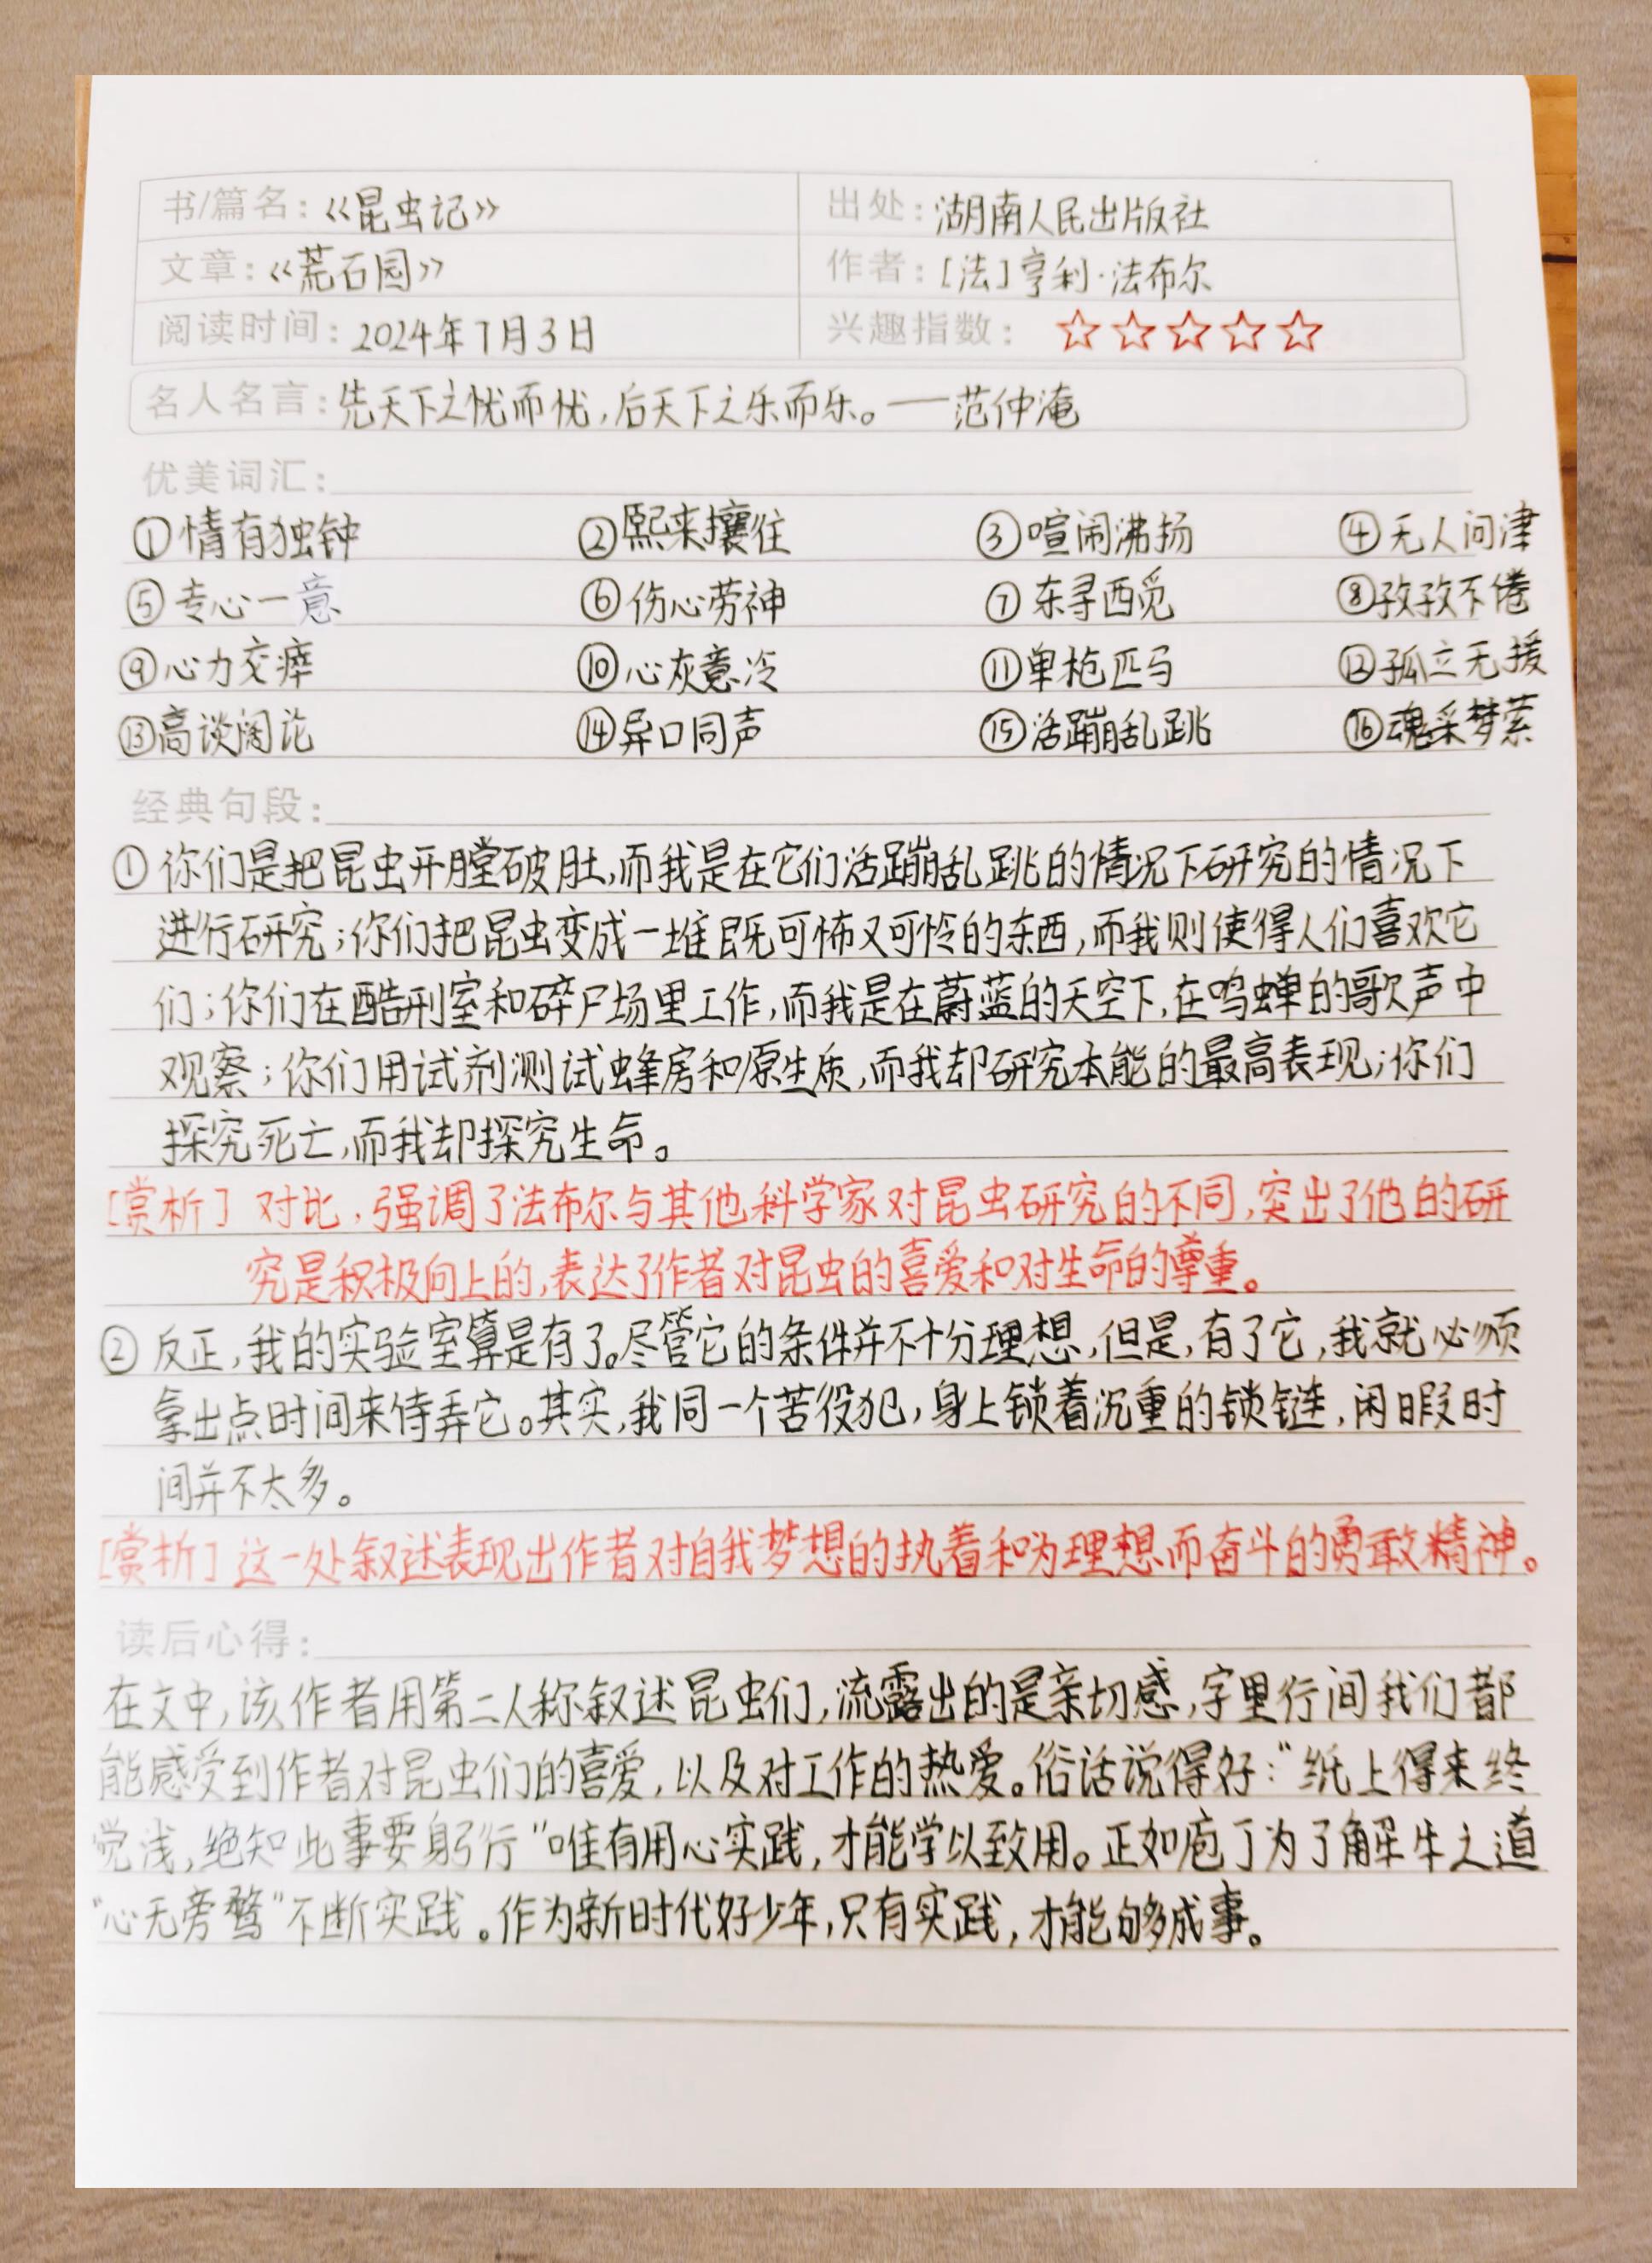 书/篇名：《昆虫记》 出处：湖南人民出版社
文章：《荒石园》 作者：[法]亨利·法布尔
阅读时间：2024年7月3日 兴趣指数：☆☆☆☆☆
名人名言：先天下之忧而忧，后天下之乐而乐。——范仲淹
优美词汇：
①情有独钟 ②熙来攘往 ③喧闹沸扬 ④无人问津
⑤专心一意 ⑥伤心劳神 ⑦东寻西觅 ⑧孜孜不倦
⑨心力交瘁 ⑩心灰意冷 ⑪单枪匹马 ⑫孤立无援
⑬高谈阔论 ⑭异口同声 ⑮活蹦乱跳 ⑯魂采梦萦
经典句段：
①你们是把昆虫开膛破肚，而我是在它们活蹦乱跳的情况下研究的情况下
进行研究；你们把昆虫变成一堆既可怖又可怜的东西，而我则使得人们喜欢它
们；你们在酷刑室和碎尸场里工作，而我是在蔚蓝的天空下，在鸣蝉的歌声中
观察；你们用试剂测试蜂房和原生质，而我却研究本能的最高表现；你们
探究死亡，而我却探究生命。
[赏析] 对比，强调了法布尔与其他科学家对昆虫研究的不同，突出了他的研
究是积极向上的，表达了作者对昆虫的喜爱和对生命的尊重。
②反正，我的实验室算是有了。尽管它的条件并不十分理想，但是，有了它，我就必须
拿出点时间来侍弄它。其实，我同一个苦役犯，身上锁着沉重的锁链，闲暇时
间并不太多。
[赏析] 这一处叙述表现出作者对自我梦想的执着和为理想而奋斗的勇敢精神。
读后心得：
在文中，该作者用第二人称叙述昆虫们，流露出的是亲切感，字里行间我们都
能感受到作者对昆虫们的喜爱，以及对工作的热爱。俗话说得好：“纸上得来终
觉浅，绝知此事要躬行”唯有用心实践，才能学以致用。正如庖丁为了解牛之道
“心无旁骛”不断实践。作为新时代好少年，只有实践，才能够成事。